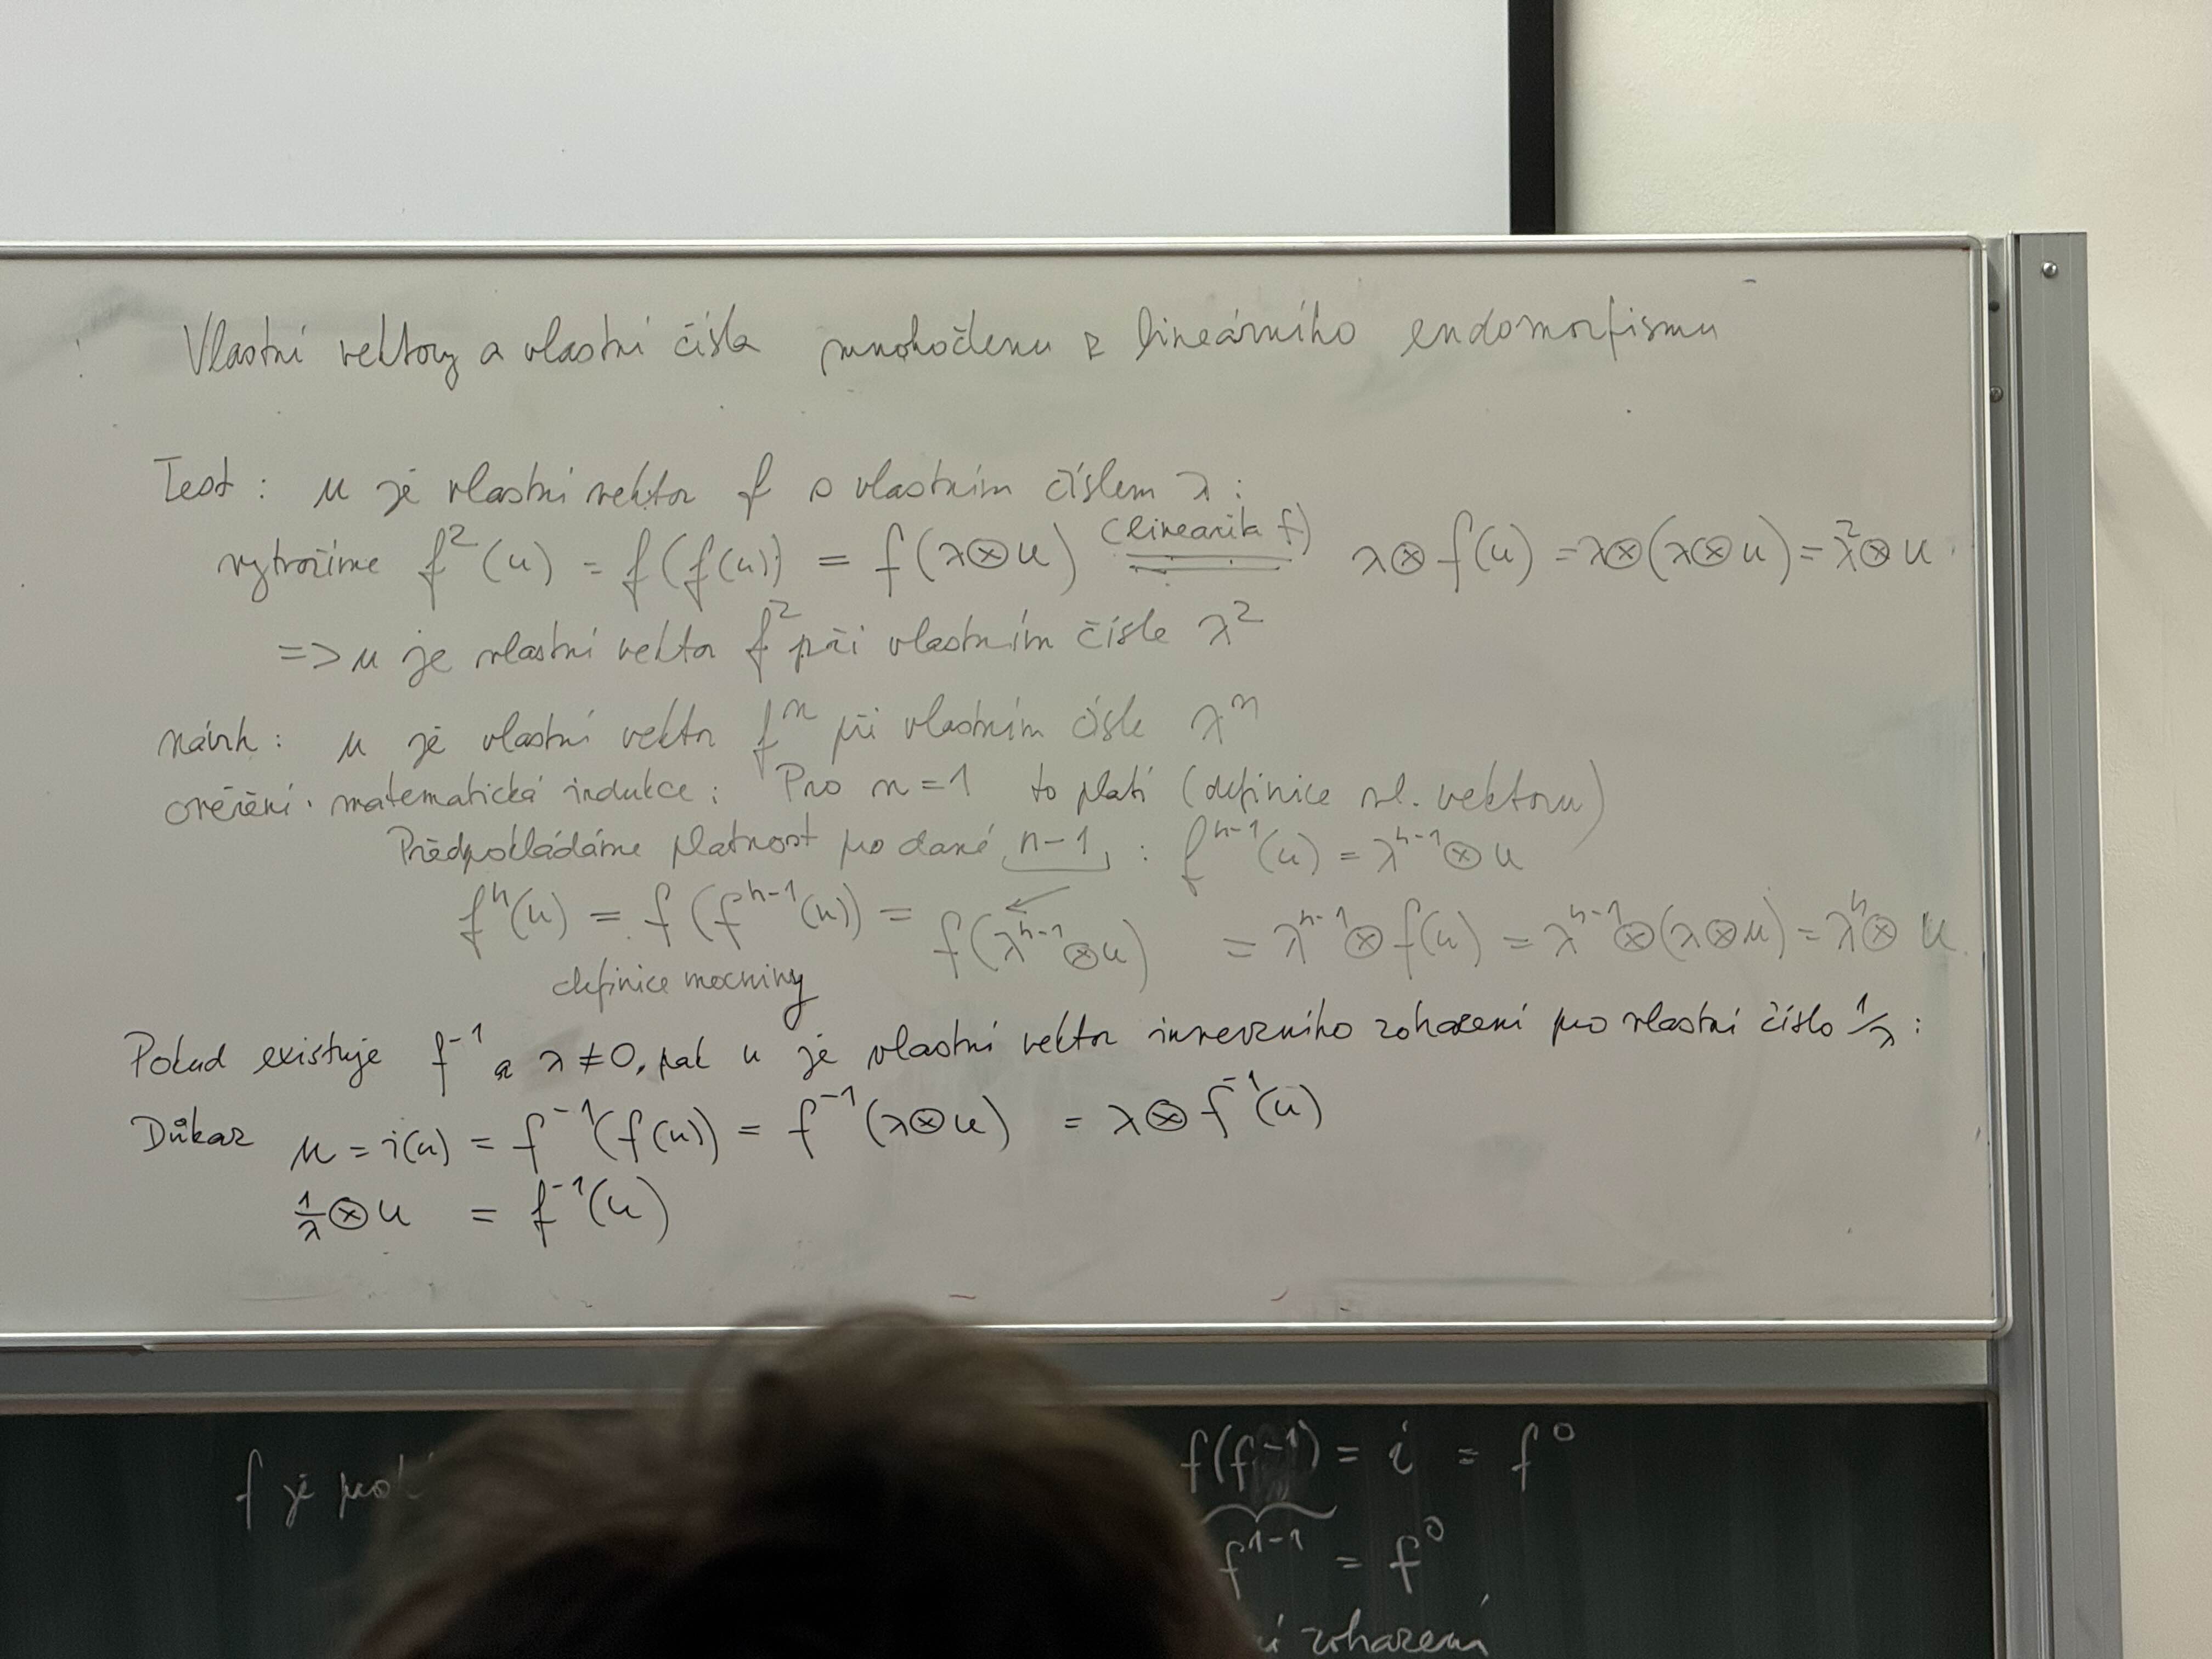 Vlastní vektory a vlastní čísla mnohočlenu z lineárního endomorfismu
Test: u je vlastní vektor f s vlastním číslem λ:
vytvoříme f²(u) = f(f(u)) = f(λ⊗u) (linearita f) = λ⊗f(u) = λ⊗(λ⊗u) = λ²⊗u.
=> u je vlastní vektor f² při vlastním čísle λ²
návrh: u je vlastní vektor fⁿ při vlastním čísle λⁿ
ověření: matematická indukce: Pro n=1 to platí (definice vl. vektoru)
Předpokládáme platnost pro dané n-1 : fⁿ⁻¹(u) = λⁿ⁻¹⊗u
fⁿ(u) = f(fⁿ⁻¹(u)) = f(λⁿ⁻¹⊗u) = λⁿ⁻¹⊗f(u) = λⁿ⁻¹⊗(λ⊗u) = λⁿ⊗u.
definice mocniny
Pokud existuje f⁻¹ a λ≠0, pak u je vlastní vektor inverzního zobrazení pro vlastní číslo 1/λ :
Důkaz u = i(u) = f⁻¹(f(u)) = f⁻¹(λ⊗u) = λ⊗f⁻¹(u)
1/λ⊗u = f⁻¹(u)
f je f(f⁻¹) = i = f⁰
f¹⁻¹ = f⁰
zobrazení